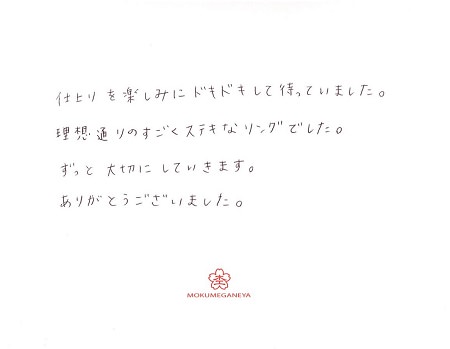 仕上りを楽しみにドキドキして待っていました。
理想通りのすごくステキなリングでした。
ずっと大切にしていきます。
ありがとうございました。
MOKUMEGANEYA